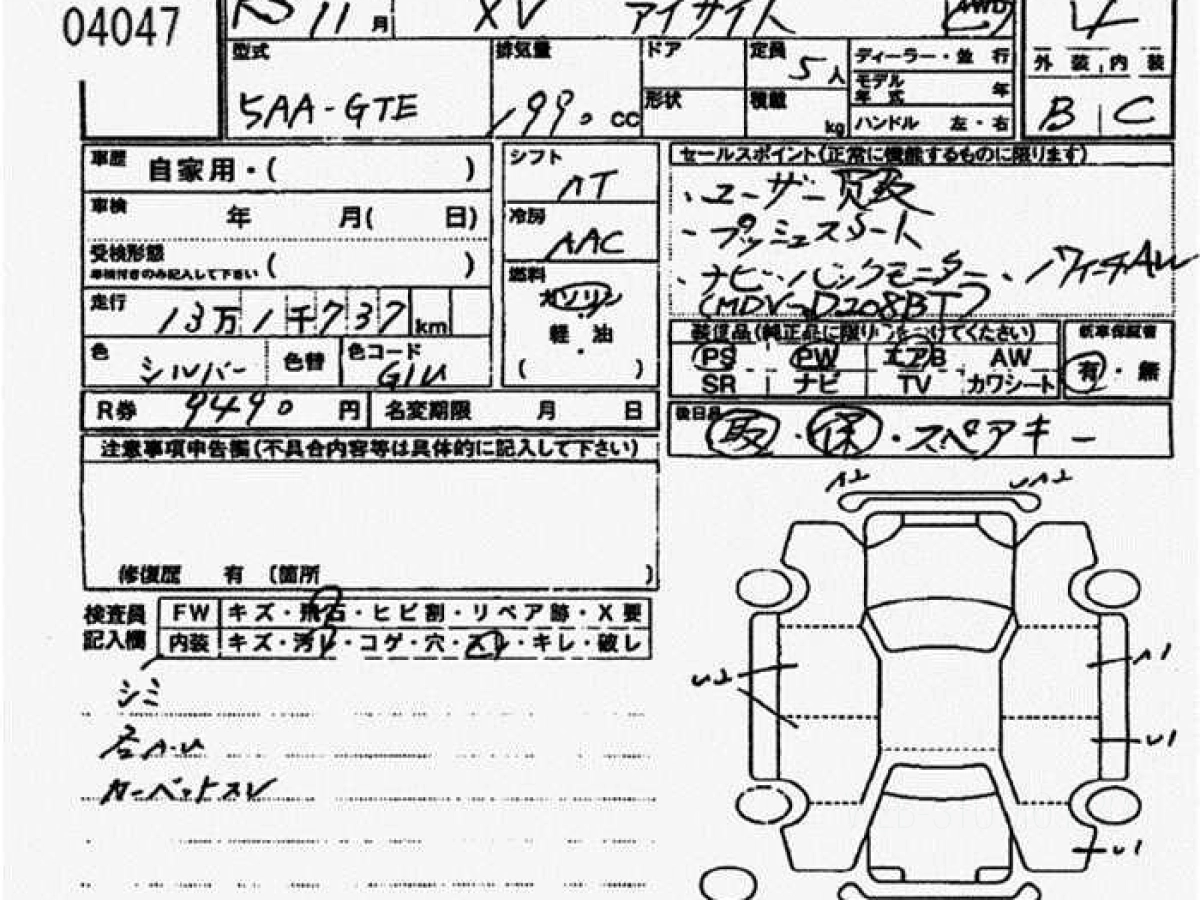 04047
R5 11 月 XV アイサイト 4WD 4
型式 排気量 ドア 定員 5 人 ディーラー・並 行 外 装 内 装
5AA-GTE 1990 cc 形状 積載 kg モデル年式 年
ハンドル 左・右 B C
車歴 自家用・( )
車検 年 月( 日)
受検形態 ( )
車検付きのみ記入して下さい
走行 13万1千737 km
色 シルバー 色替 色コード G1U
R券 9490 円 名変期限 月 日
シフト AT
冷房 AAC
燃料 ガソリン
・
軽 油
( )
セールスポイント(正常に機能するものに限ります)
・ユーザー買取
・プッシュスタート
・ナビ・バックモニター
(MDV-D208BT)
装備品(純正品に限り をつけてください) 新車保証書
PS PW エアB AW 有・無
SR ナビ TV カワシート
後日品 取・保・スペアキー
注意事項申告欄(不具合内容等は具体的に記入して下さい)
修復歴 有 〔箇所 〕
検査員記入欄 FW キズ・飛石・ヒビ割・リペア跡・X要
内装 キズ・汚レ・コゲ・穴・スレ・キレ・破レ
シミ
左A-U
カーペットスレ
A2 U12
U2 A1
U1
U1